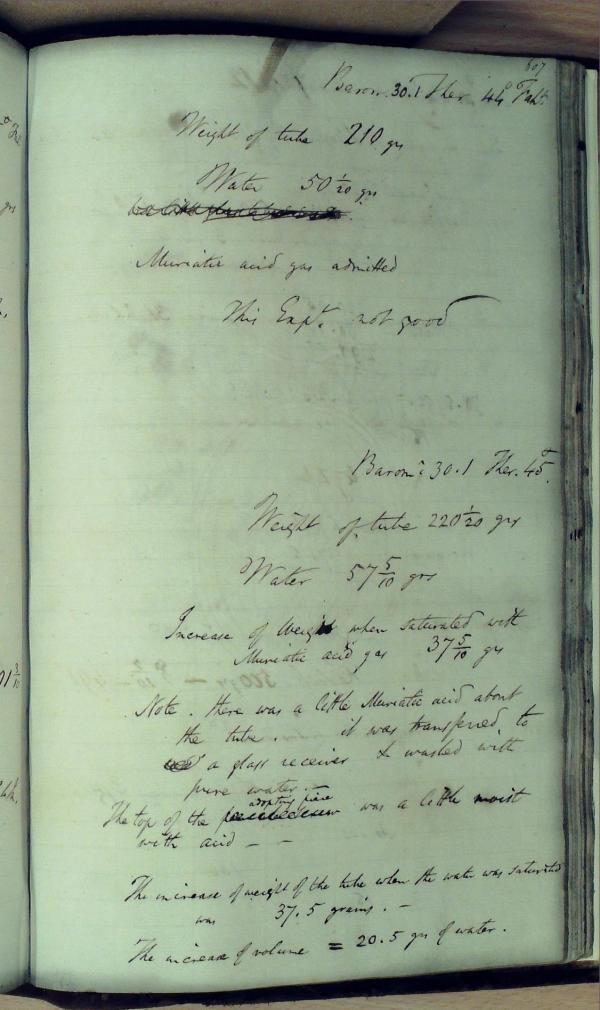 607
Barom. 30.1 Ther. 44° Faht.
Weight of tube 210 grs
Water 50 1/20 grs
Muriatic acid gas admitted
This Expt. not good
Barom.r 30.1 Ther. 45°.
Weight of tube 220 1/20 grs
Water 57 5/10 grs
Increase of Weight when saturated with
Muriatic acid gas 37 5/10 grs
Note. there was a little Muriatic acid about
the tube. it was transferred to
a glass receiver & washed with
pure water.
adopting piece
The top of the was a little moist
with acid — —
The increase of weight of the tube when the water was saturated
was 37.5 grains. —
The increase of volume = 20.5 grs of water.